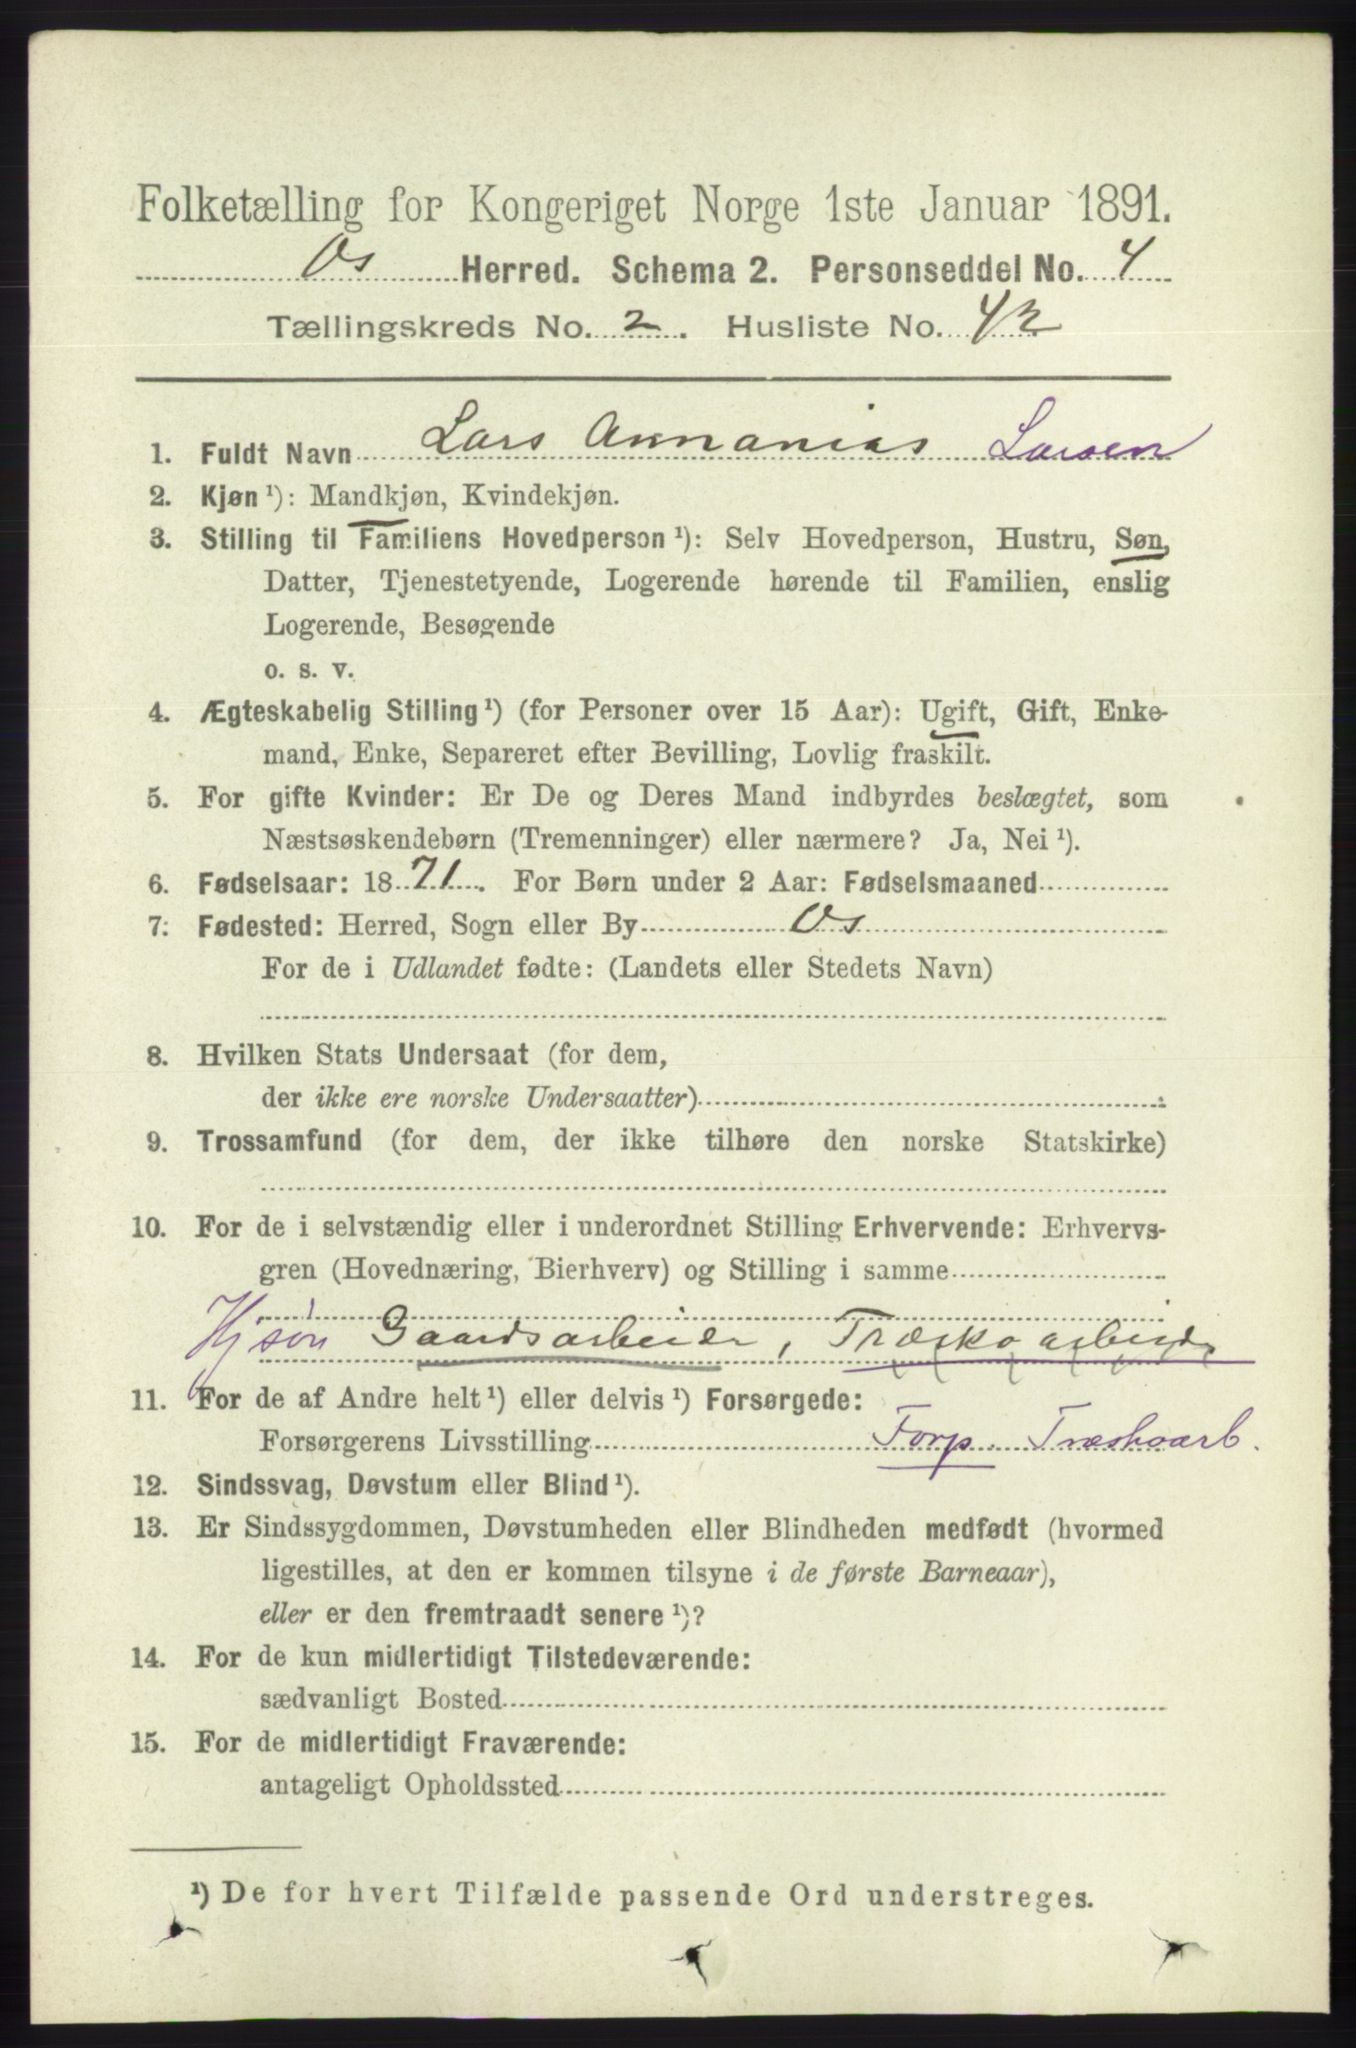 Folketælling for Kongeriget Norge 1ste Januar 1891.
Os Herred. Schema 2. Personseddel No. 4
Tællingskreds No. 2. Husliste No. 42
1. Fuldt Navn Lars Annanias Larsen
2. Kjøn ¹): Mandkjøn, Kvindekjøn.
3. Stilling til Familiens Hovedperson ¹): Selv Hovedperson, Hustru, Søn,
Datter, Tjenestetyende, Logerende hørende til Familien, enslig
Logerende, Besøgende
o. s. v.
4. Ægteskabelig Stilling ¹) (for Personer over 15 Aar): Ugift, Gift, Enke-
mand, Enke, Separeret efter Bevilling, Lovlig fraskilt.
5. For gifte Kvinder: Er De og Deres Mand indbyrdes beslægtet, som
Næstsøskendebørn (Tremenninger) eller nærmere? Ja, Nei ¹).
6. Fødselsaar: 1871. For Børn under 2 Aar: Fødselsmaaned
7. Fødested: Herred, Sogn eller By Os
For de i Udlandet fødte: (Landets eller Stedets Navn)
8. Hvilken Stats Undersaat (for dem,
der ikke ere norske Undersaatter)
9. Trossamfund (for dem, der ikke tilhøre den norske Statskirke)
10. For de i selvstændig eller i underordnet Stilling Erhvervende: Erhvervs-
gren (Hovednæring, Bierhverv) og Stilling i samme
Hj søn Gaardsarbeider, Træskoarbeider
11. For de af Andre helt ¹) eller delvis ¹) Forsørgede:
Forsørgerens Livsstilling Forp. Træskoarb.
12. Sindssvag, Døvstum eller Blind ¹).
13. Er Sindssygdommen, Døvstumheden eller Blindheden medfødt (hvormed
ligestilles, at den er kommen tilsyne i de første Barneaar),
eller er den fremtraadt senere ¹)?
14. For de kun midlertidigt Tilstedeværende:
sædvanligt Bosted
15. For de midlertidigt Fraværende:
antageligt Opholdssted
¹) De for hvert Tilfælde passende Ord understreges.